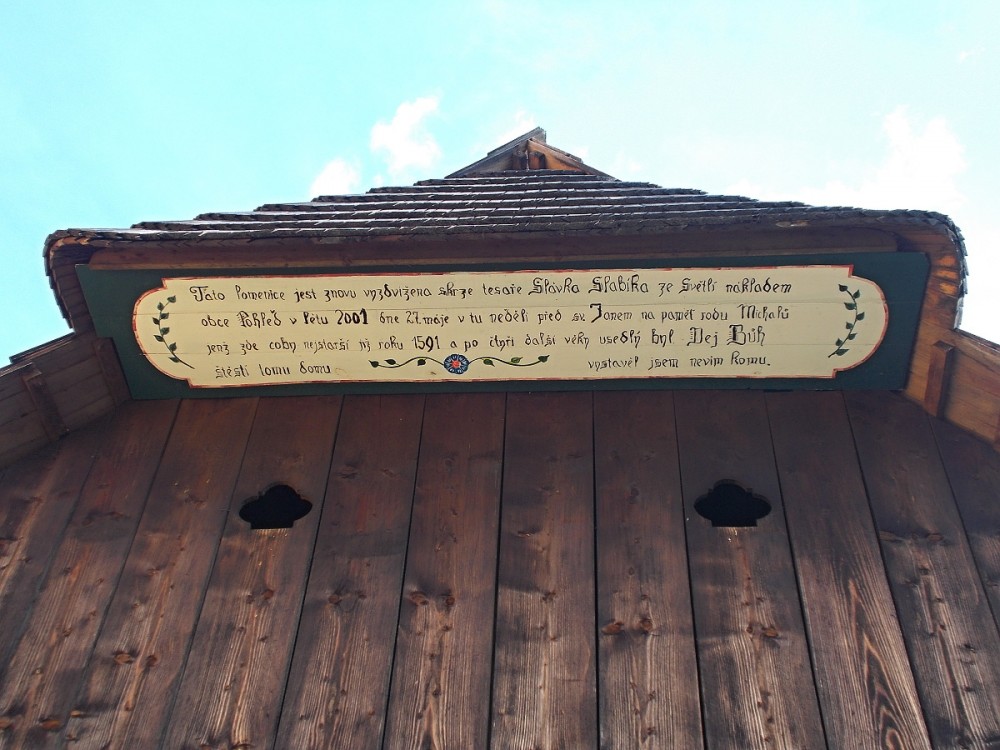 Tato lomenice jest znovu vyzdvižena skrze tesaře Slávka Slabíka ze Světlí nákladem
obce Pohleď v létu 2001 dne 27. máje v tu neděli před sv. Janem na paměť rodu Michalů
jenž zde coby nejstarší již roku 1591 a po čtyři další věky usedlý byl. Dej Bůh
štěstí tomu domu vystavěl jsem nevím komu.